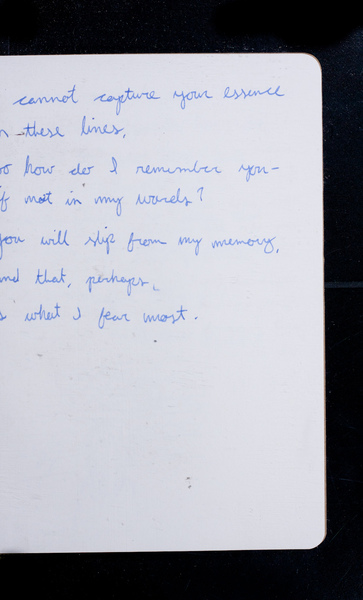 cannot capture your essence
n these lines,
o how do I remember you-
f not in my words?
you will slip from my memory,
nd that, perhaps,
s what I fear most.